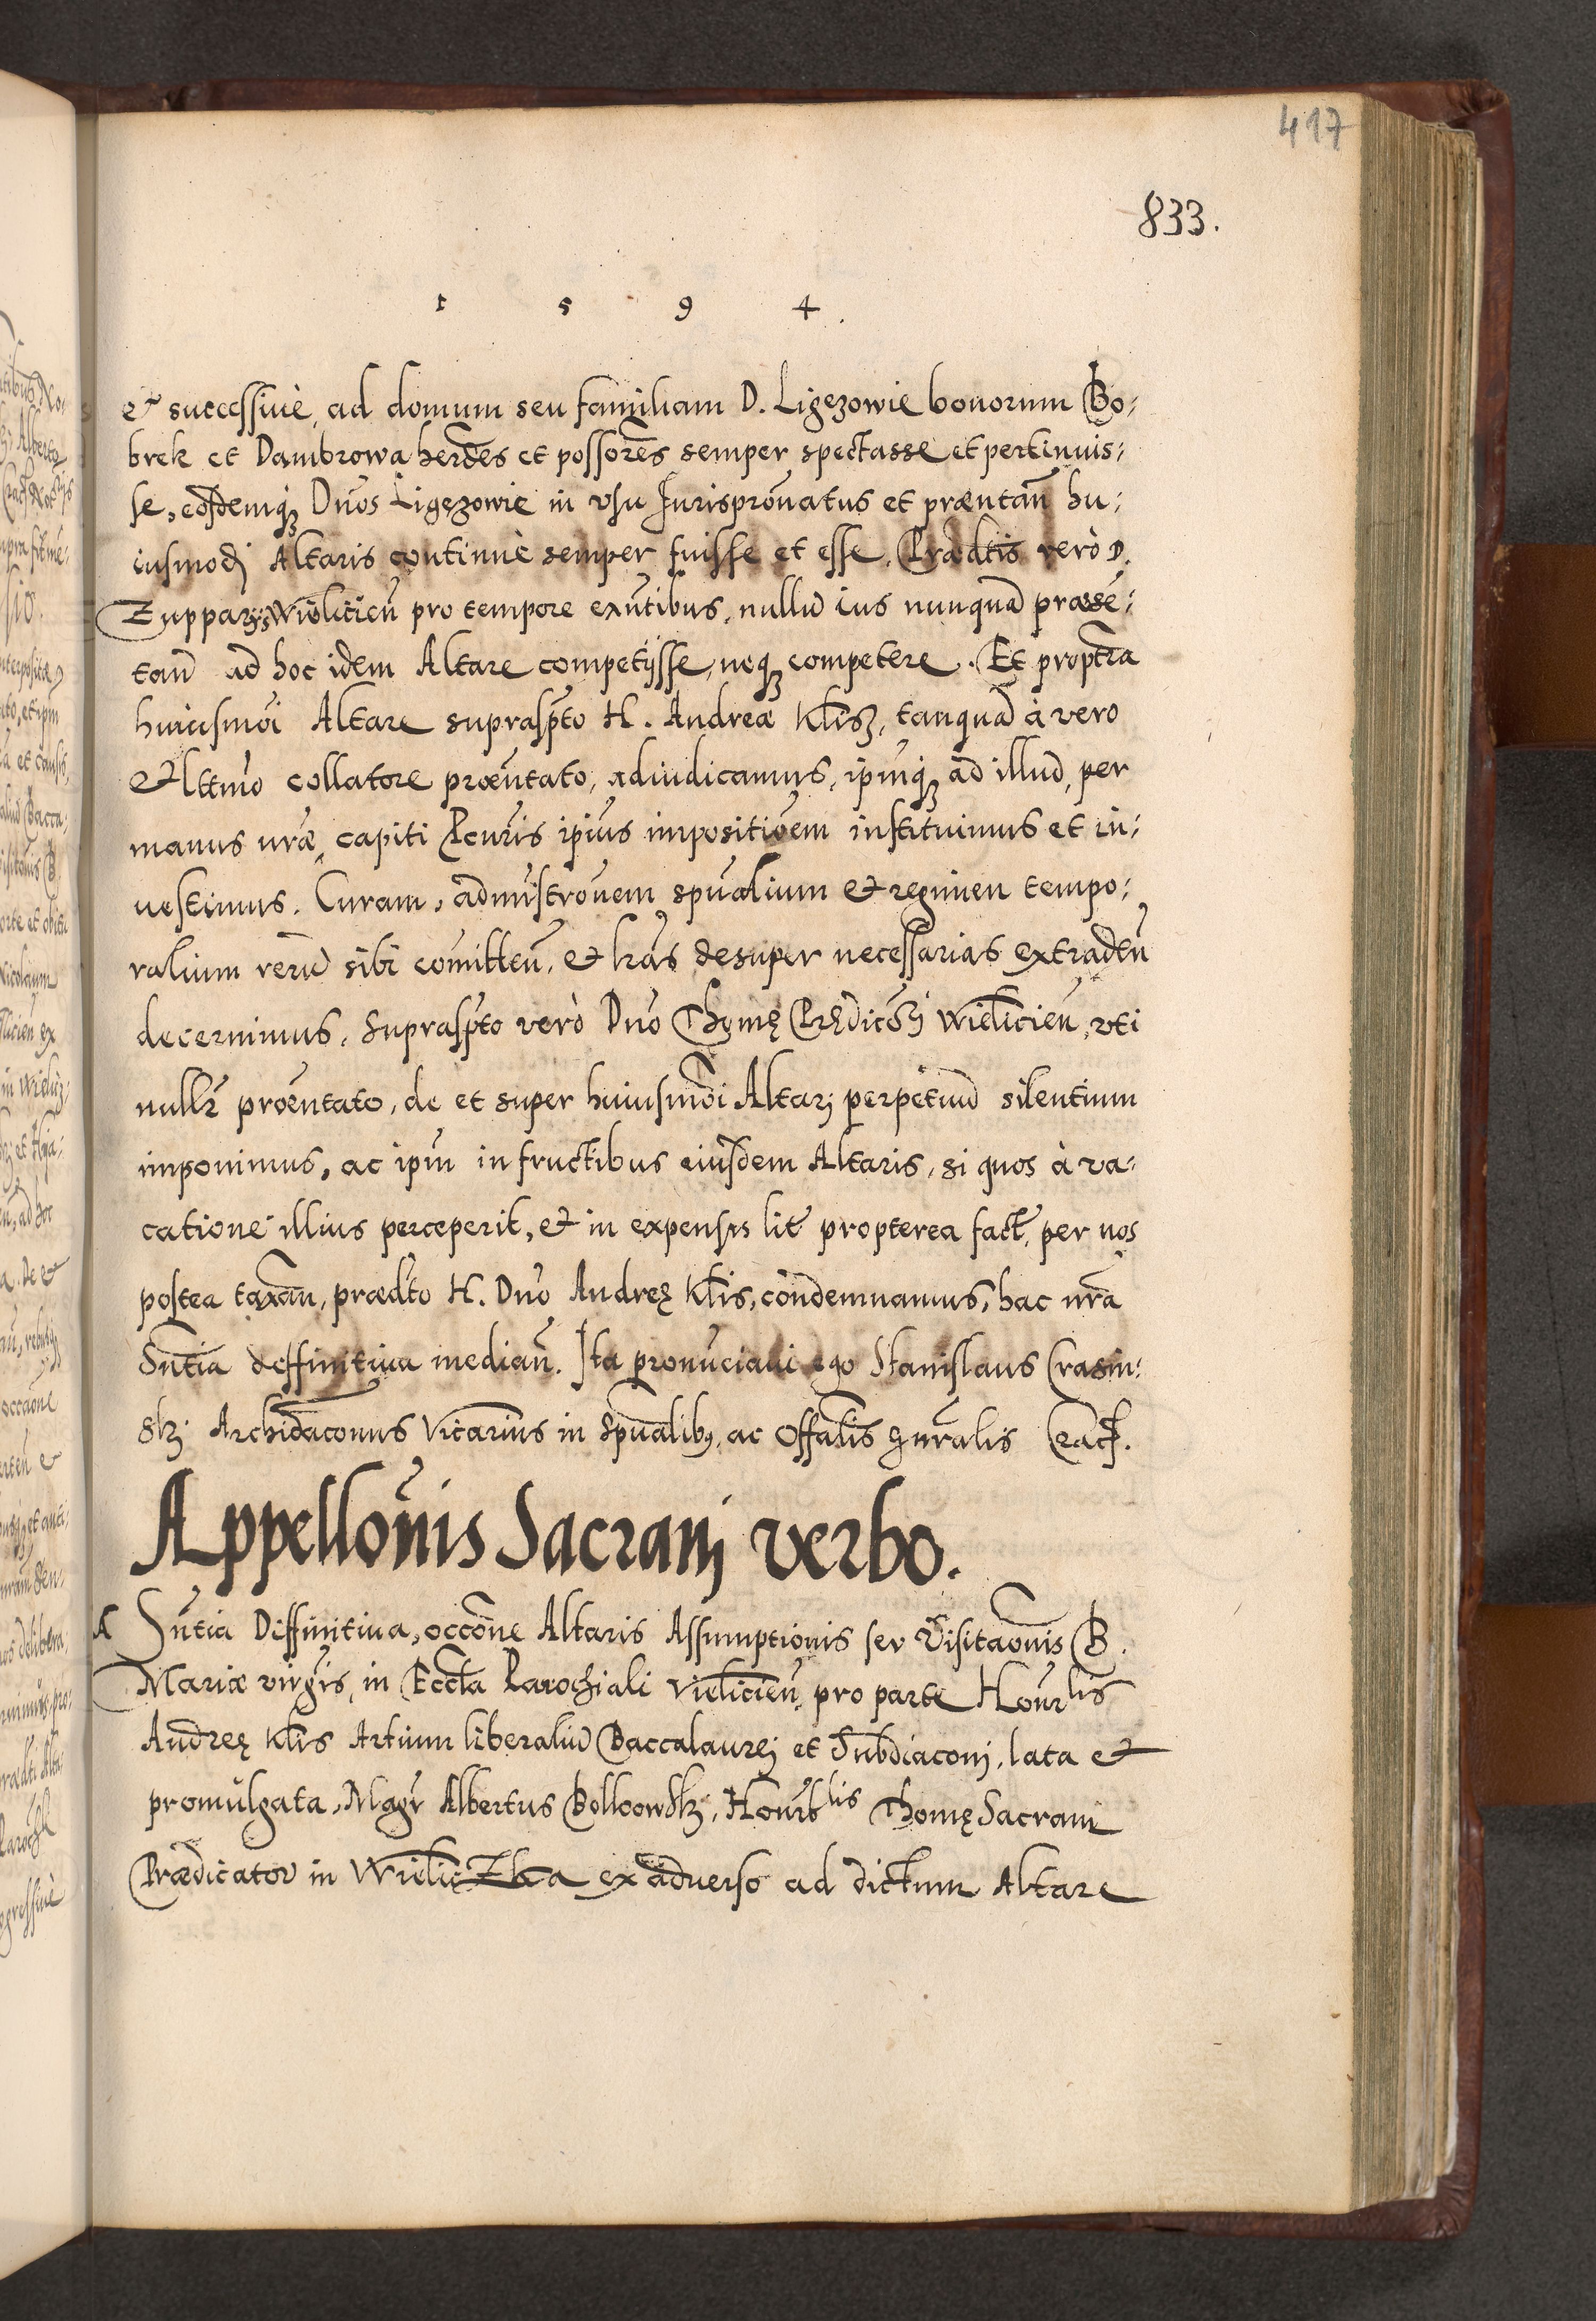 417
833.
1 5 9 4.
et successiuè, ad domum seu familiam D. Ligęzowie bonorum Bo:
brek et Dambrowa herdes et possores semper spectasse et pertinuis:
se, eosdemq3 Dnos Ligęzowie in vsu Jurisprонatus et præntañ hu:
iusmodj Altaris continuè semper fuisse et esse. Prædtis verò D.
Zupparijs Wieliciеñ pro tempore exñtibus, nullũ ius nunquã præsẽ:
tañ ad hoc idem Altare competijsse, neq3 competere. Et proptra
huiusmõi Altare suprasp̃to H. Andreæ Klis3, tanquã à vero
et lttmo collatore præntato, adiudicamus, ipm̃q3 ad illud, per
manus nr̃æ, capiti Pñris ipius impositiõem instituimus et in:
uestimus. Curam, admĩstrõnem spũalium et regimen tempo:
ralium rerũ sibi com̃itteñ, et lrãs desuper necessarias extradeñ
decernimus, suprasp̃to verò Dnõ Thomę Prędicãri Wielicieñ, vti
nullr̃ præntato, de et super huiusmõi Altarj perpetuũ silentium
imponimus, ac ipm̃ in fructibus eiusdem Altaris, si quos à va:
catione illius perceperit, et in expensis lit̃ propterea fact̃, per nos
postea taxañ, prædto H. Dnõ Andreę Klis, condemnamus, hac nrã
Sñtia deffinitiua mediañ. Ita pronũciaui ego Stanislaus Crasin:
skj Archidiaconus Vicarius in Spũalibq, ac Offalis gñralis Crac̃.
Appellõnis Sacranj verbo.
A Sñtia Diffinitiua, occõne Altaris Assumptionis seu Visitaõnis B.
Mariæ virg̃is, in Eccta Parochiali Vielicieñ, pro parte Hoñrlis
Andreę Klis Artium liberaliũ Baccalaurej et Subdiaconj, lata et
promulgata, Magr̃ Albertus Thomę Sacrani
Prædicator in Wieliczka ex aduerso ad dictum Altare